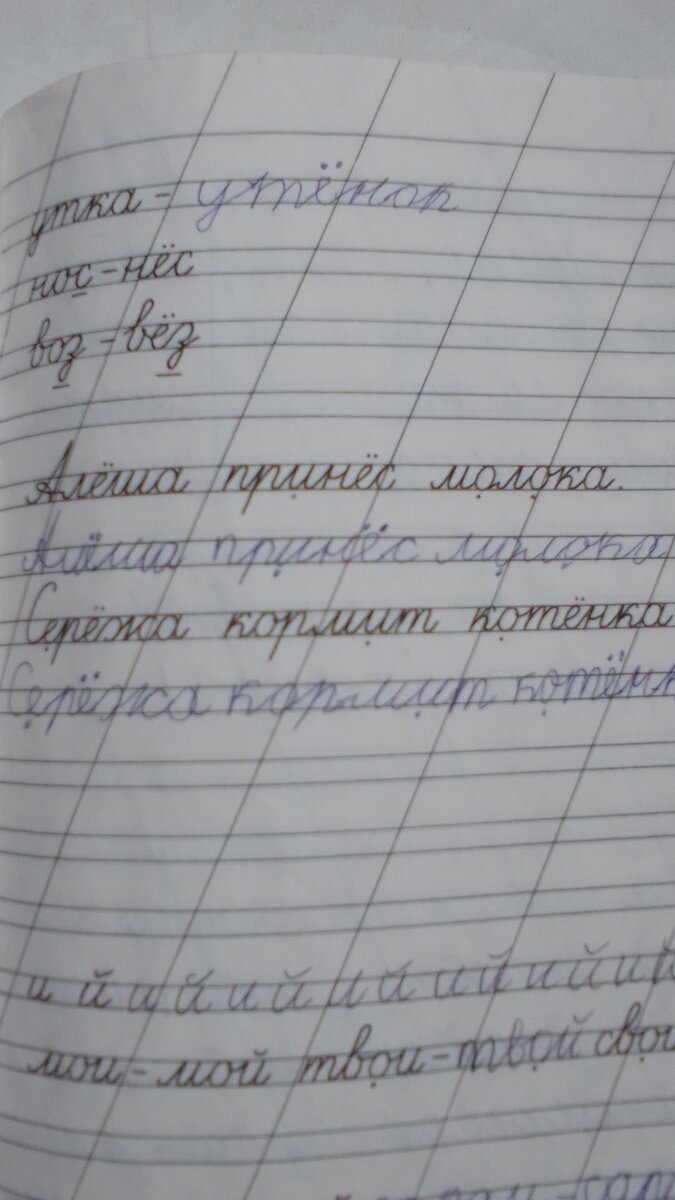 утка - утёнок
нос - нёс
воз - вёз
Алёша принёс молока.
Алёша принёс молока
Серёжа кормит котёнка
Серёжа кормит котёнк
и й и й и й и й и й и й и й
мои - мой твои - твой свои